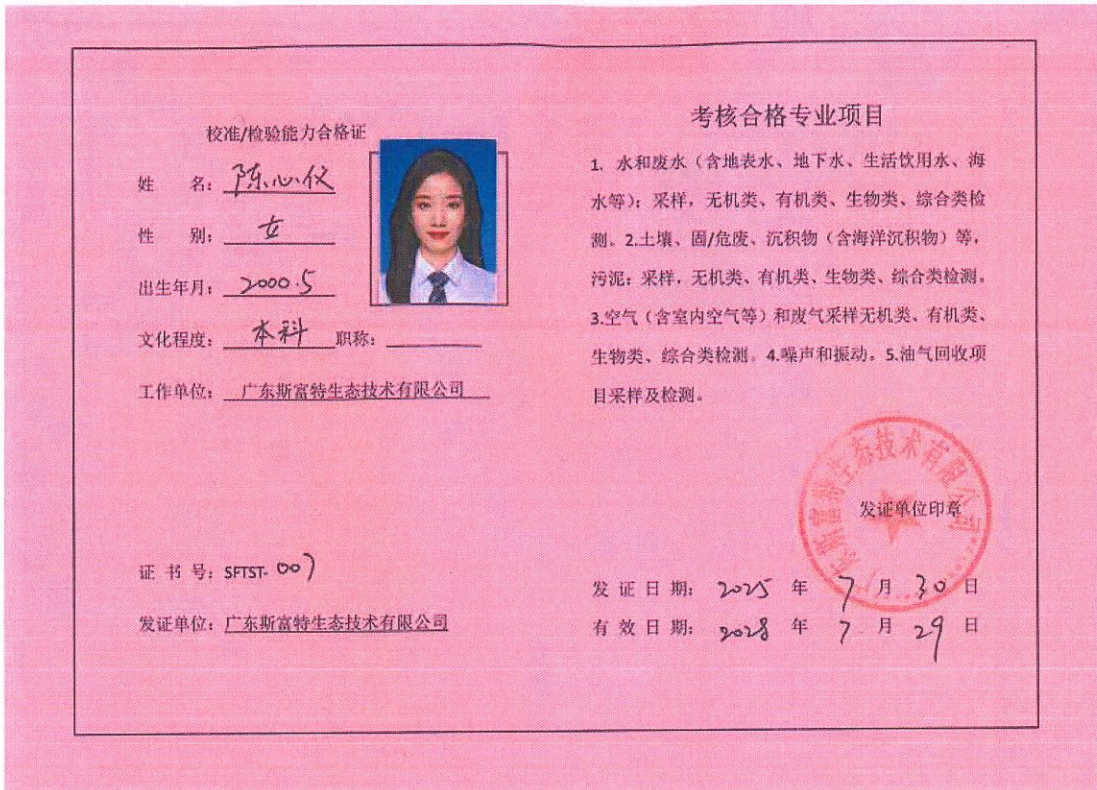 校准/检验能力合格证
姓 名：陈心仪
性 别：女
出生年月：2000.5
文化程度：本科 职称：
工作单位：广东斯富特生态技术有限公司
证 书 号：SFTST-007
发证单位：广东斯富特生态技术有限公司
考核合格专业项目
1. 水和废水（含地表水、地下水、生活饮用水、海
水等）：采样，无机类、有机类、生物类、综合类检
测。2.土壤、固/危废、沉积物（含海洋沉积物）等，
污泥：采样，无机类、有机类、生物类、综合类检测。
3.空气（含室内空气等）和废气采样无机类、有机类、
生物类、综合类检测。4.噪声和振动。5.油气回收项
目采样及检测。
东斯富特生态技术有限公司
发证单位印章
发 证 日 期： 2025 年 7 月 30 日
有 效 日 期： 2028 年 7 月 29 日